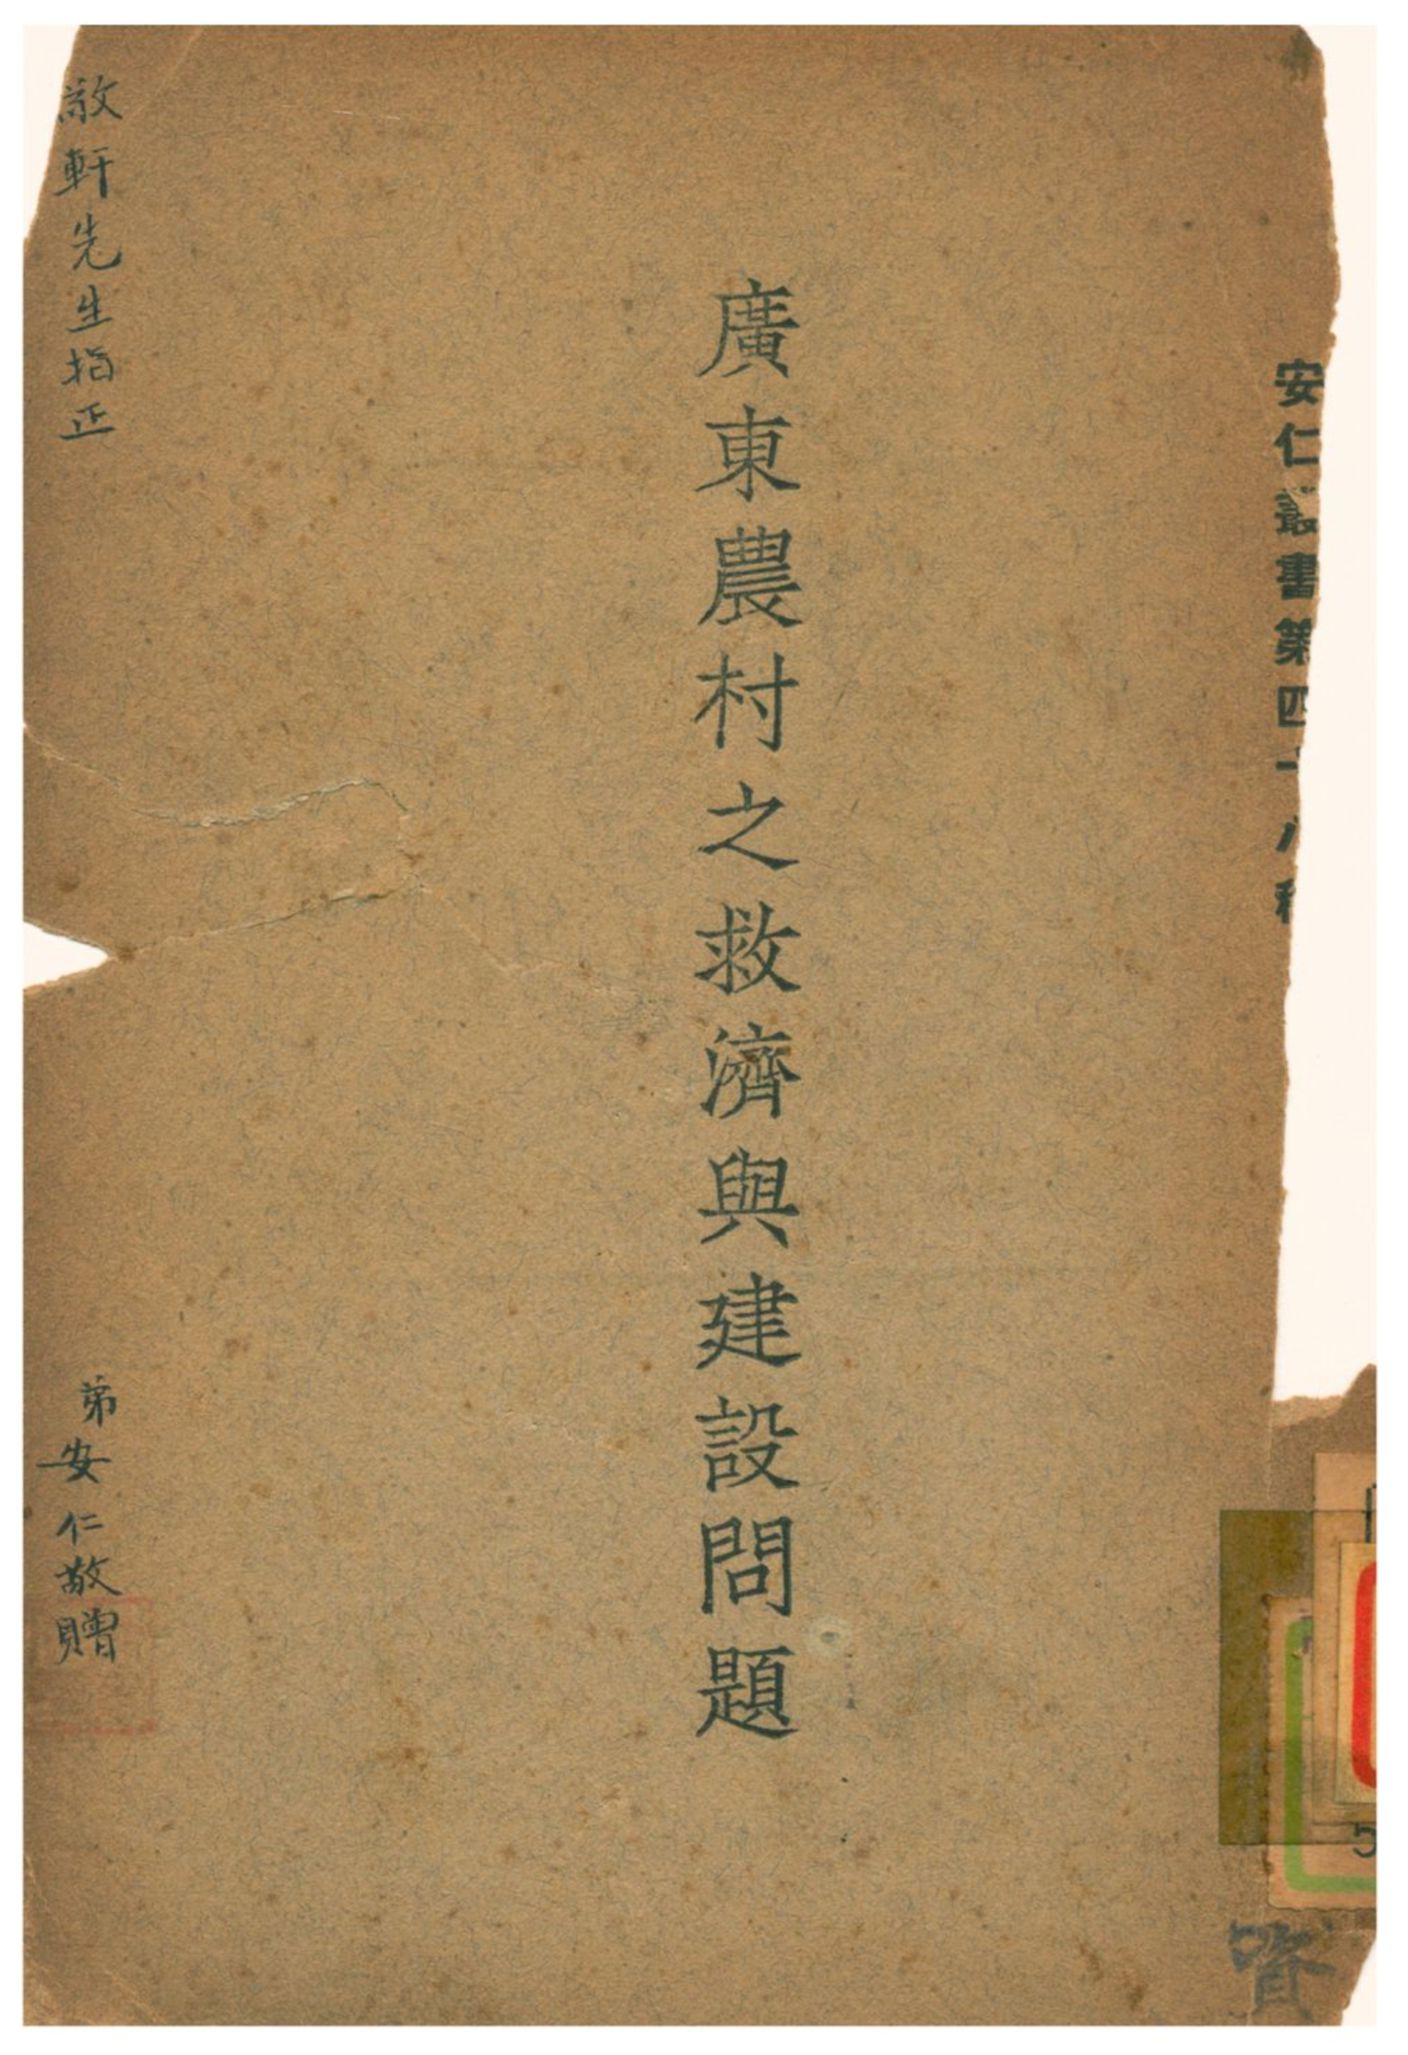 安仁叢書第四十八種
廣東農村之救濟與建設問題
敬軒先生指正
弟安仁敬贈
資